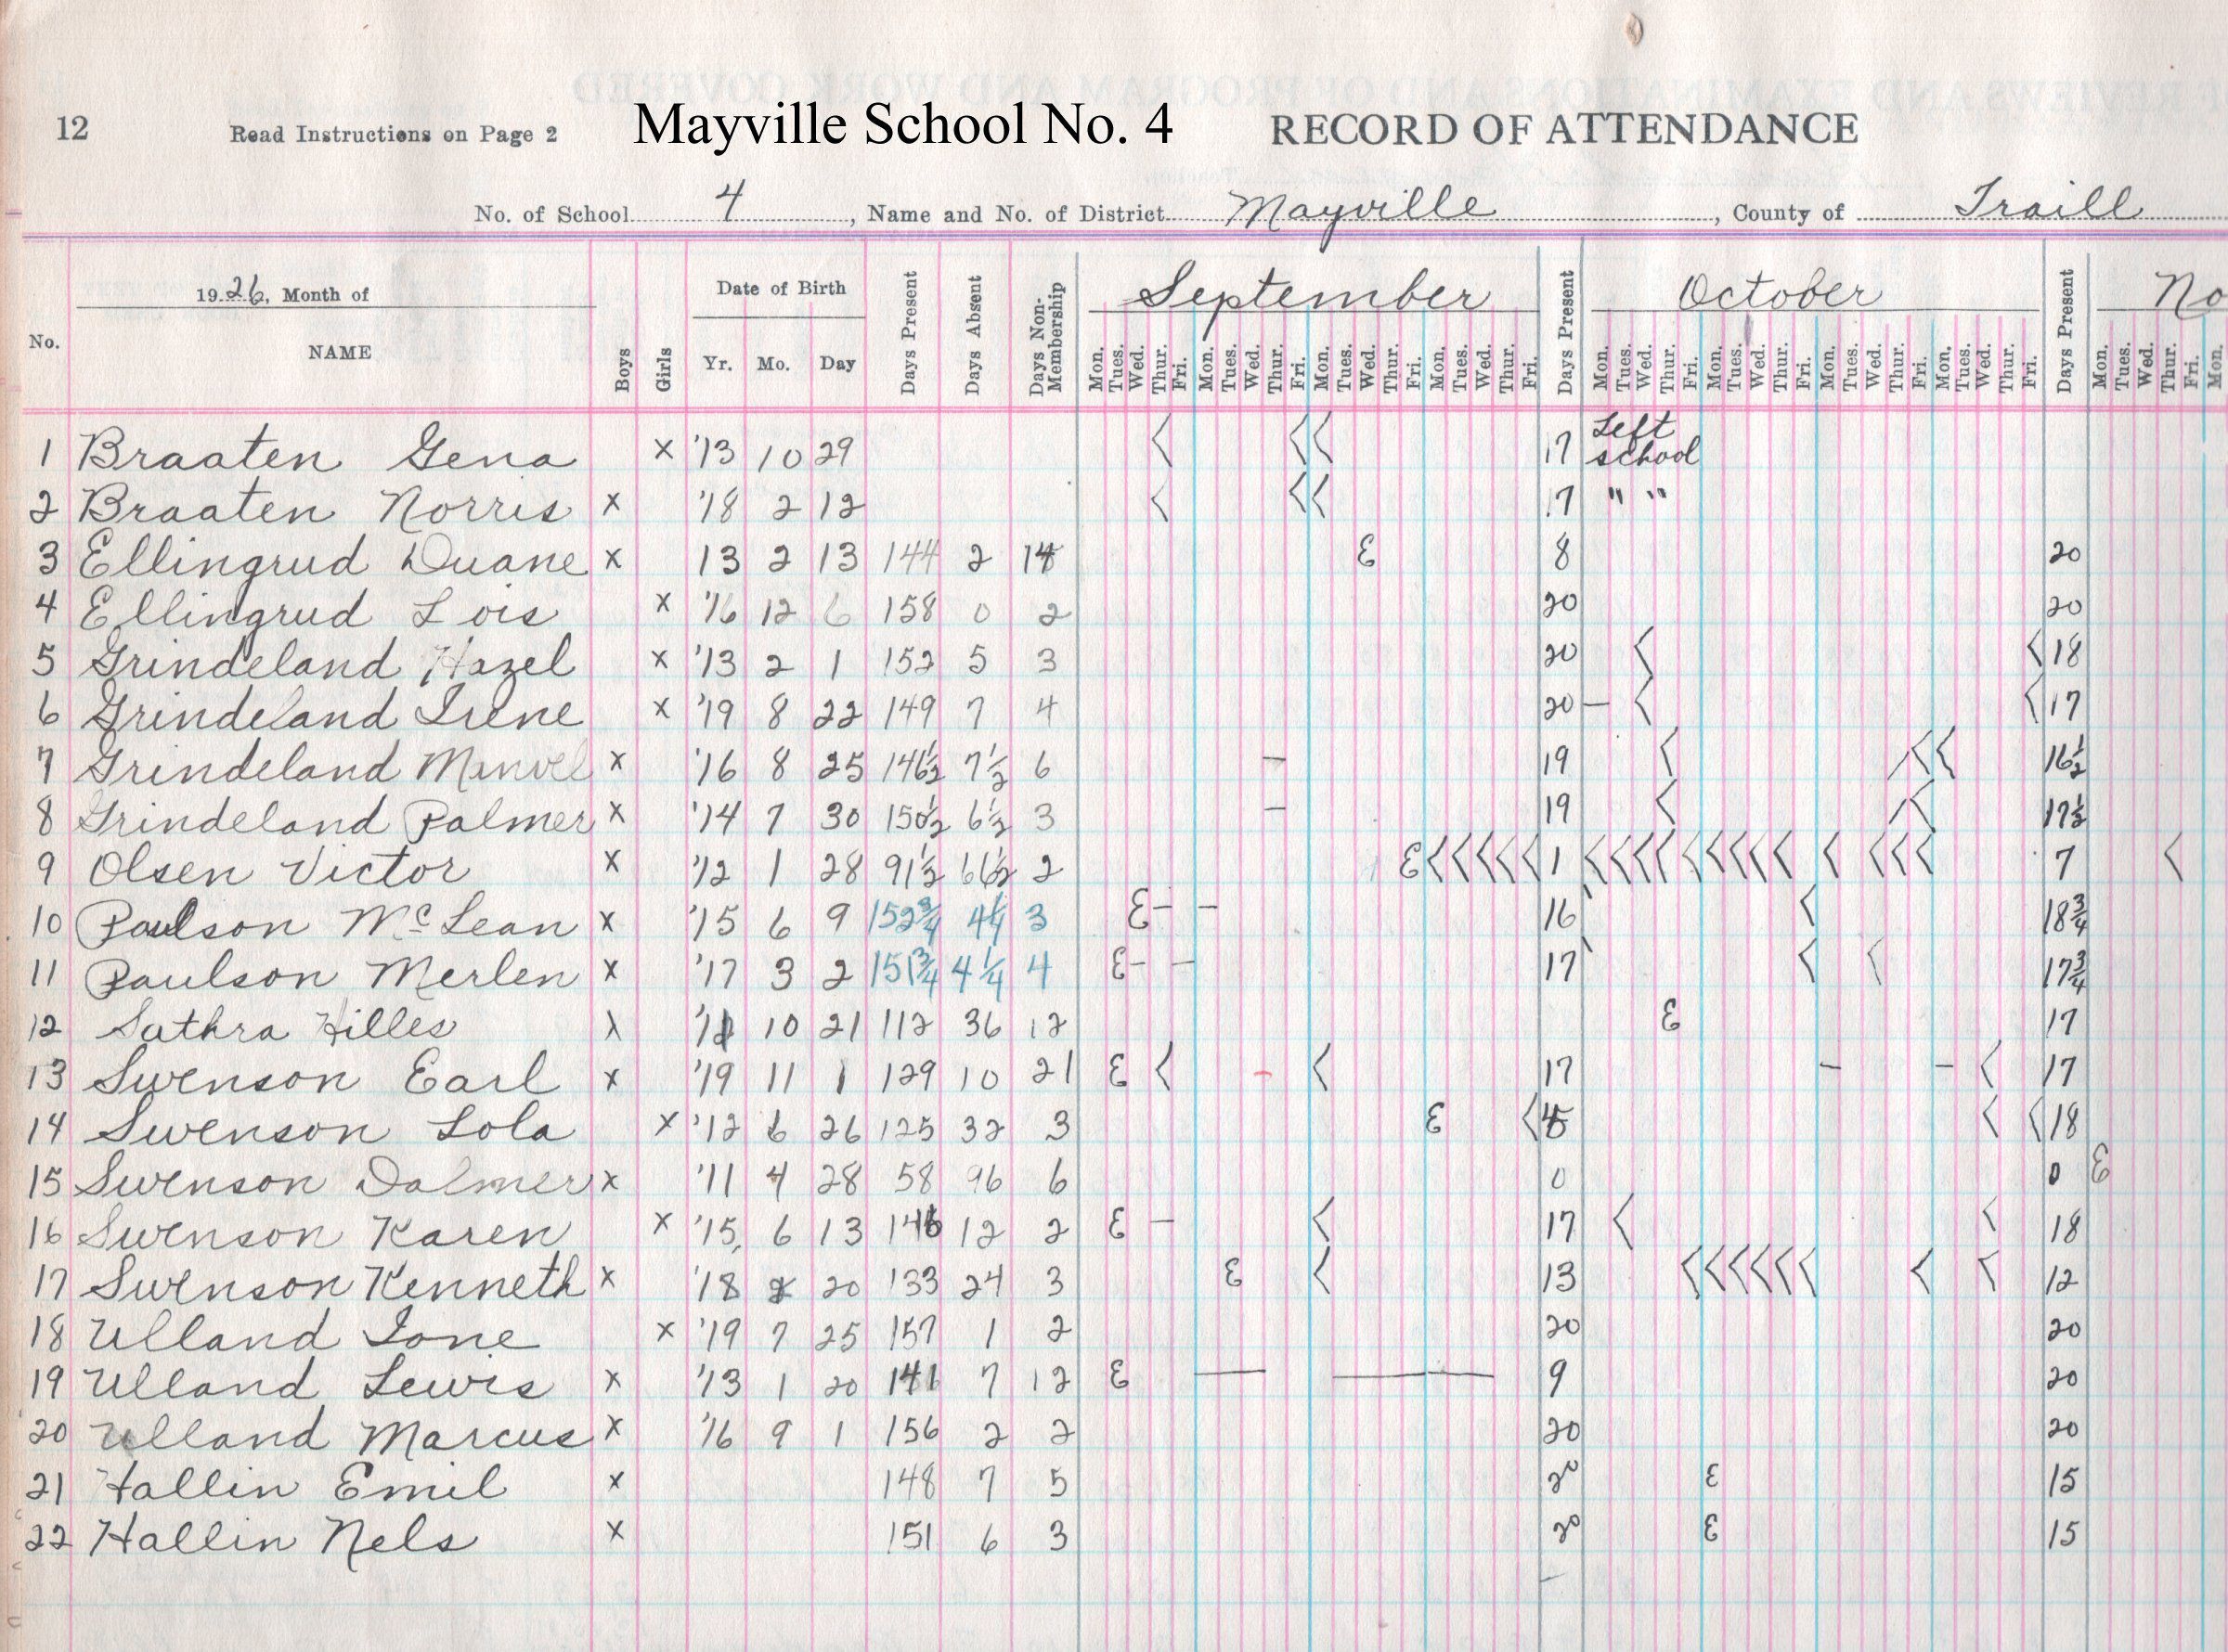 12 Read Instructions on Page 2 Mayville School No. 4 RECORD OF ATTENDANCE
No. of School 4, Name and No. of District Mayville, County of Traill
No. 1926, Month of NAME Boys Girls Date of Birth Yr. Mo. Day Days Present Days Absent Days Non-Membership September Days Present October Days Present No
Mon. Tues. Wed. Thur. Fri. Mon. Tues. Wed. Thur. Fri. Mon. Tues. Wed. Thur. Fri. Mon. Tues. Wed. Thur. Fri. Mon. Tues. Wed. Thur. Fri. Mon. Tues. Wed. Thur. Fri. Mon. Tues. Wed. Thur. Fri. Mon. Tues. Wed. Thur. Fri. Mon. Tues. Wed. Thur. Fri. Mon.
1 Braaten Gena x '13 10 29 17 Left school
2 Braaten Norris x '18 2 12 17 " "
3 Ellingrud Duane x 13 2 13 144 2 14 E 8 20
4 Ellingrud Lois x '16 12 6 158 0 2 20 20
5 Grindeland Hazel x '13 2 1 152 5 3 20 18
6 Grindeland Irene x '19 8 22 149 7 4 20 – 17
7 Grindeland Manvel x '16 8 25 146½ 7½ 6 – 19 16½
8 Grindeland Palmer x '14 7 30 150½ 6½ 3 – 19 17½
9 Olsen Victor x '12 1 28 91½ 66½ 2 E 1 7
10 Paulson McLean x '15 6 9 152¾ 4¼ 3 E – – 16 18¾
11 Paulson Merlen x '17 3 2 151¾ 4¼ 4 E – – 17 17¾
12 Sathra Hilles x 10 21 112 36 12 E 17
13 Swenson Earl x '19 11 1 129 10 21 E – 17 – – 17
14 Swenson Lola x '12 6 26 125 32 3 E 18
15 Swenson Dalmer x '11 4 28 58 96 6 0 0 E
16 Swenson Karen x '15 6 13 146 12 2 E – 17 18
17 Swenson Kenneth x '18 20 133 24 3 E 13 12
18 Ulland Ione x '19 7 25 157 1 2 20 20
19 Ulland Lewis x '13 1 20 141 7 12 E — — 9 20
20 Ulland Marcus x '16 9 1 156 2 2 20 20
21 Hallin Emil x 148 7 5 20 E 15
22 Hallin Nels x 151 6 3 20 E 15